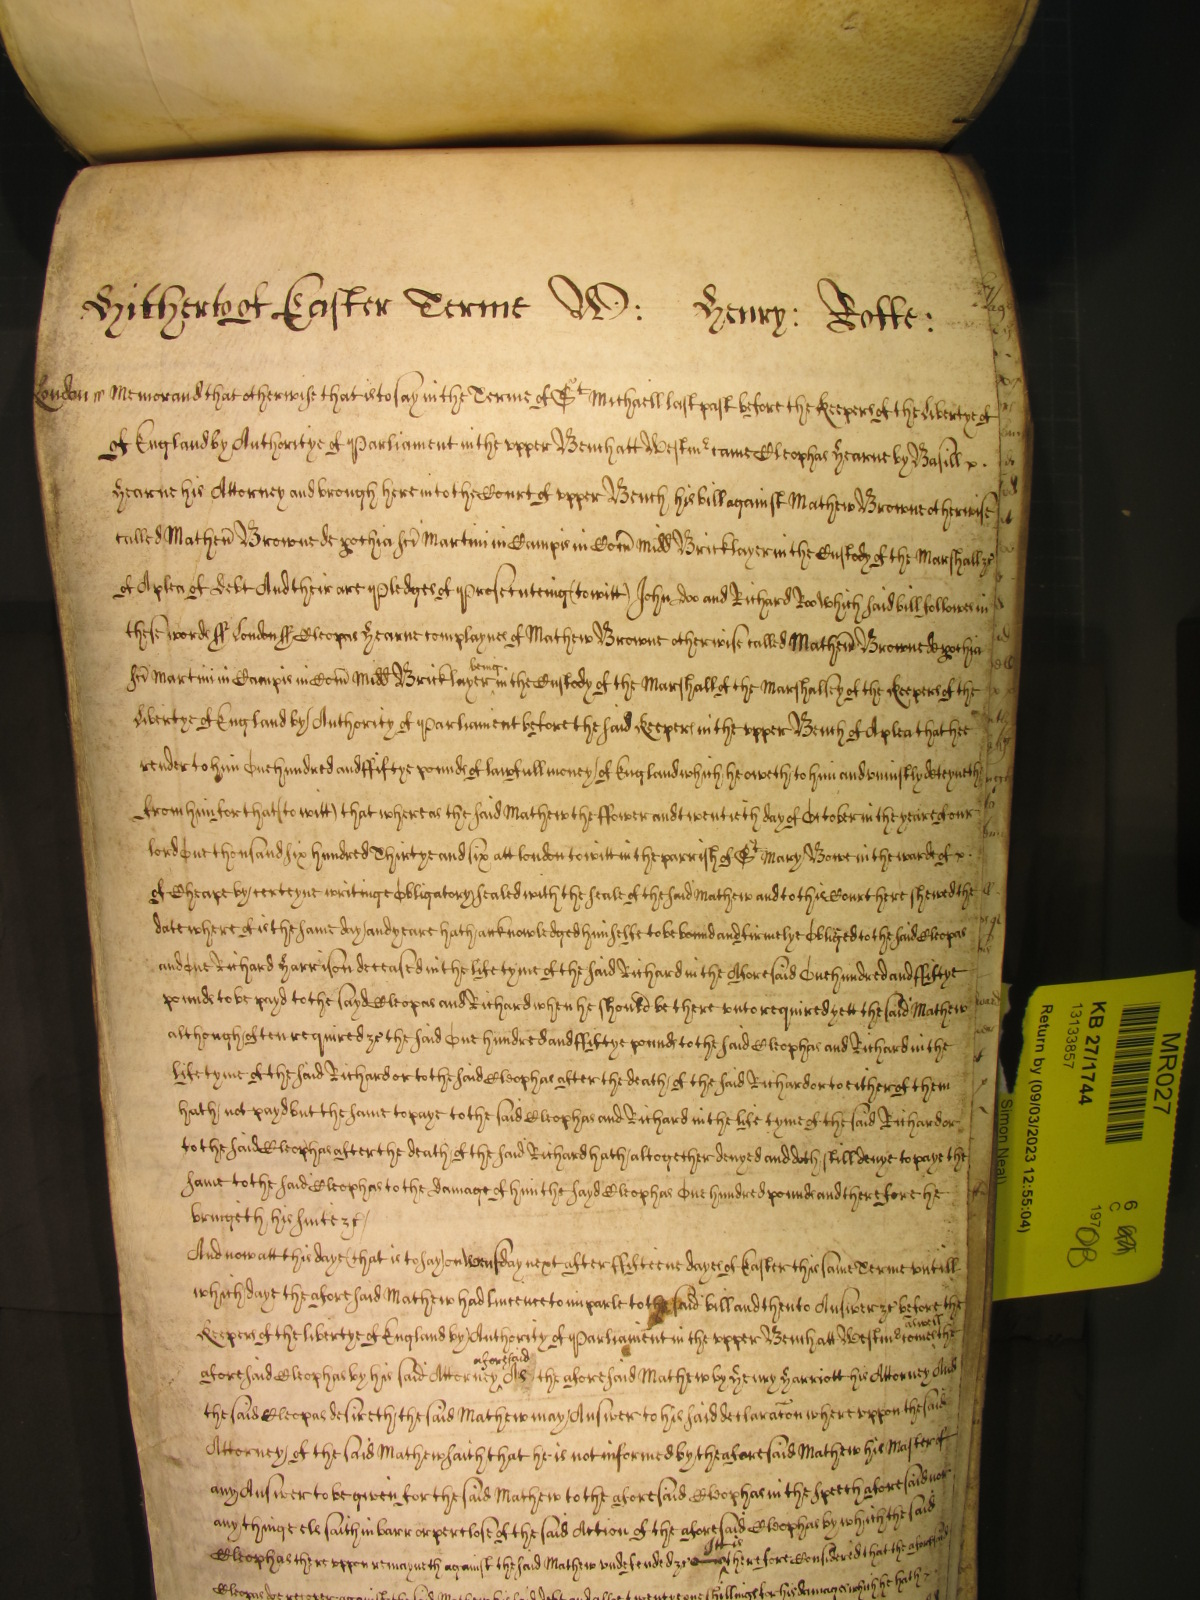 Hitherto of Easter Terme W: Henry: Rolle:
London ss Memorand that otherwise that is to say in the Terme of St Michaell last past before the Keepers of the libertye of
of England by Authoritye of Parliament in the upper Bench att Westmr came Cleophas Hearne by Basill x.
Hearne his Attorney and brough here into the Court of upper Bench his bill against Mathew Browne otherwise
called Mathew Browne de pochia sci Martini in Campis in Com Midd Bricklayer in the Custody of the Marshall &c
of A plea of debt And their are Pledges of Prosecuteing (to witt) John doo and Richard Roo Which said bill followes in
these words ss London ss Cleopas Hearne complaynes of Mathew Browne otherwise called Mathew Browne de pochia
sci Martini in Campis in Com Midd Bricklayer being in the Custody of the Marshall of the Marshalsey of the Keepers of the
libertye of England by Authority of Parliament before the said Keepers in the upper Bench of A plea that hee
render to him One hundred and ffiftye pounds of lawfull money of England which he oweth to him and uniustly deteyneth
from him for that (to witt) that whereas the said Mathew the ffower and twentieth day of October in the yeare of our
lord One thousand six hundred Thirtye and six att london to witt in the parrish of St Mary Bowe in the warde of x.
of Cheape by certeyne writinge Obligatory sealed with the seale of the said Mathew and to this Court here shewed the
date where of is the same day and yeare hath acknowledged himselfe to be bound and firmelye Obliged to the said Cleopas
and One Richard Harrison deceased in the life tyme of the said Richard in the Aforesaid One hundred and ffiftye
pounds to be payd to the sayd Cleopas and Richard when he should be there unto required yett the said Mathew
although often required &c the said One hundred and ffiftye pounds to the said Cleophas and Richard in the
life tyme of the said Richard or to the said Cleophas after the death of the said Richard or to either of them
hath not payd but the same to paye to the said Cleophas and Richard in the life tyme of the said Richard or
to the said Cleophas after the death of the said Richard hath altogether denyed and doth still denye to paye the
same to the said Cleophas to the damage of him the sayd Cleophas One hundred pounds and therefore he
bringeth his suite &c
And now att this daye (that is to say) on Wensday next after ffifteene dayes of Easter this same Terme untill
which daye the aforesaid Mathew had lincence to imparle to the said bill and then to Answer &c before the
Keepers of the libertye of England by Authority of Parliament in the upper Bench att Westmr comes aswell the
aforesaid Cleophas by his said Attorney aforesaid As the aforesaid Mathew by Henry Harriott his Attorney And
the said Cleopas desireth the said Mathew may Answer to his said declaraton where uppon the said
Attorney of the said Mathew saith that he is not informed by the aforesaid Mathew his Master of
any Answer to be given for the said Mathew to the aforesaid Cleophas in the speech aforesaid nor
any thinge els saith in barr or perclose of the said Action of the aforesaid Cleophas by which the said
Cleophas there uppon remayneth against the said Mathew undefended &c Itt is therefore Considered that the aforesaid
Cleopas do recover against the said Mathew his said debt and allso twenty one shillings for his damages which he hath
MR027
KB 27/1744
13133857
Return by (09/03/2023 12:55:04)
Simon Neal
6
C
197